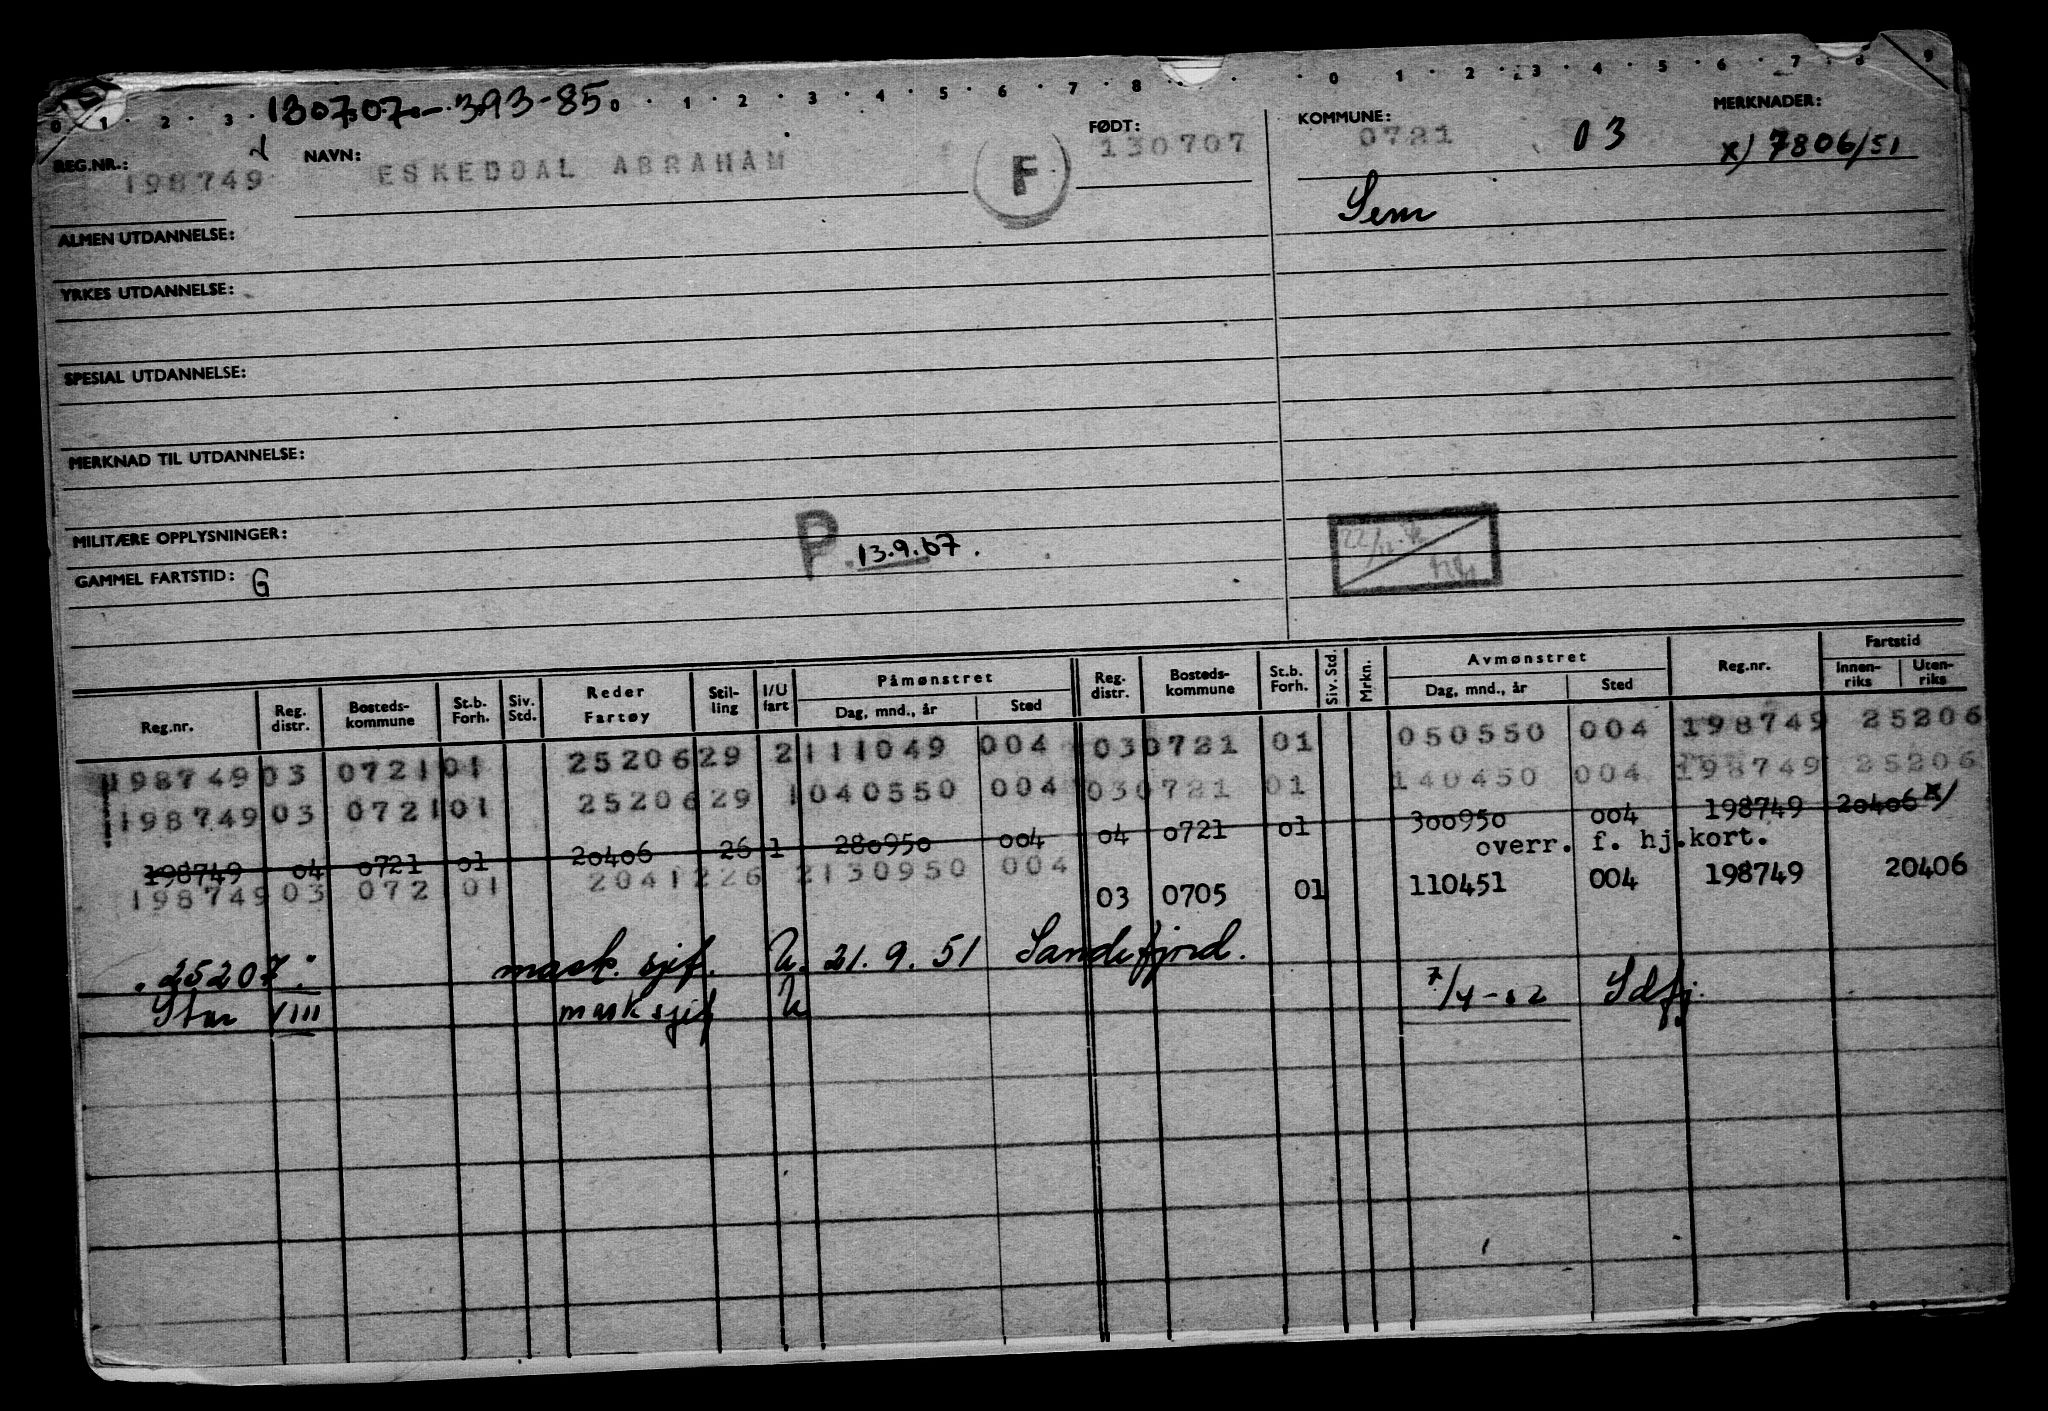 130707 - 393-85
0 1 2 3 0 1 2 3 4 5 6 7 8 0 1 2 3 4 5 6 7 8 9
REG.NR.: 198749 NAVN: ESKEDDAL ABRAHAM F FØDT: 130707 KOMMUNE: 0721 03 MERKNADER: x) 7806/51
Sem
ALMEN UTDANNELSE:
YRKES UTDANNELSE:
SPESIAL UTDANNELSE:
MERKNAD TIL UTDANNELSE:
MILITÆRE OPPLYSNINGER:
P. 13.9.67.
GAMMEL FARTSTID: G
Reg.nr. Reg. distr. Bosteds-kommune St.b. Forh. Siv. Std. Reder Fartøy Stil-ling I/U fart Påmønstret Dag, mnd., år Sted Reg. distr. Bosteds-kommune St.b. Forh. Siv. Std. Mrkn. Avmønstret Dag, mnd., år Sted Reg.nr. Fartstid Innen-riks Uten-riks
198749 03 0721 01 25206 29 2 111049 004 03 0721 01 050550 004 198749 25206
198749 03 0721 01 25206 29 1 040550 004 03 0721 01 140450 004 198749 25206
198749 04 0721 01 20406 26 1 280950 004 04 0721 01 300950 004 198749 20406 x/
overr. f. hj.kort.
198749 03 072 01 20412 26 2 130950 004 03 0705 01 110451 004 198749 20406
25207 mask. sjef. U. 21.9.51 Sandefjord.
Star VIII mask sjef U 7/4-52 Sdfj.